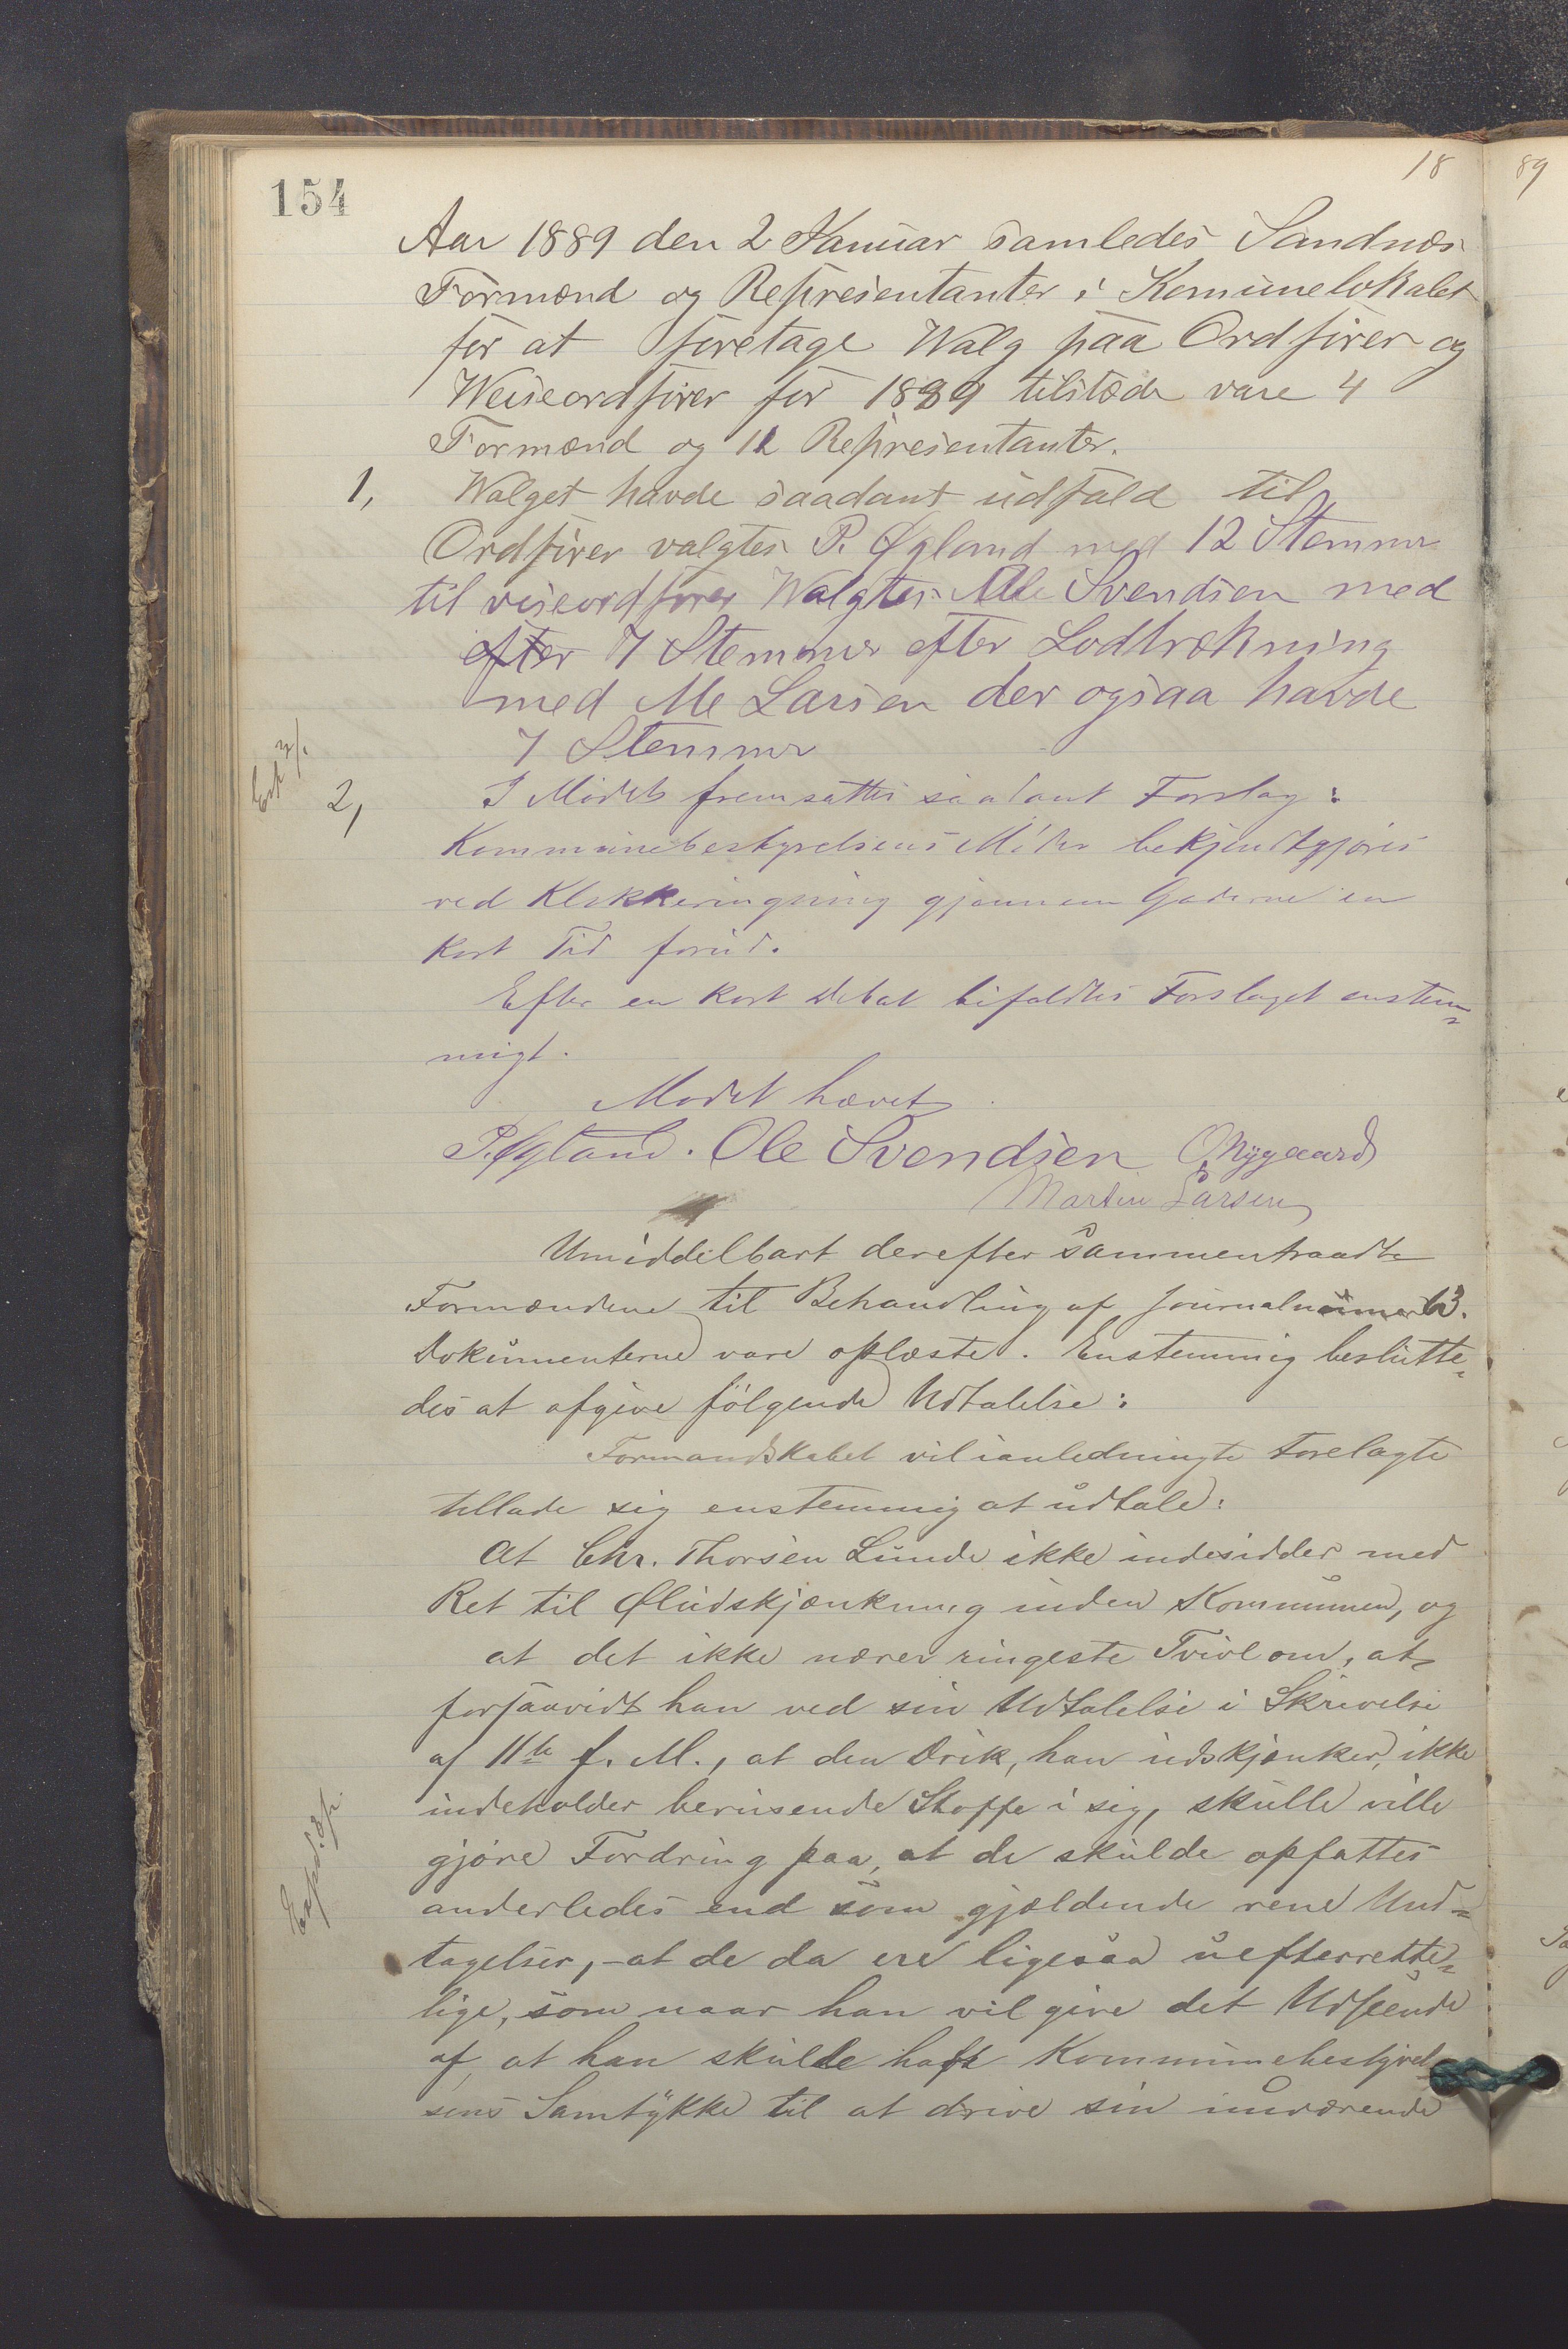 154
18 89
Aar 1889 den 2 Januar samledes Sandnæs
Formænd og Repræsentanter i Komunelokalet
for at foretage Walg paa Ordfører og
Weiseordfører for 1889 tilstæde vare 4
Formænd og 12 Repræsentanter.
1, Walget havde saadant udfald til
Ordfører valgtes P. Øgland med 12 Stemmer
til viseordfører Walgtes Ole Svendsen med
efter 7 Stemmer efter Lodtrækning
med M Larsen der ogsaa havde
7 Stemmer
2, I Mødet fremsattes saadant Forslag:
Kommunebestyrelsens Møder bekjendtgjøres
ved Klokkeringning gjennem Gaderne en
kort Tid forud.
Efter en kort Debat bifaldtes Forslaget enstem-
migt.
Mødet hævet
P. Øgland. Ole Svendsen O Nygaard
Martin Larsen
Umiddelbart derefter sammentraadte
Formændene til Behandling af Journalnumer 63.
Dokumenterne vare oplæste. Enstemmig beslutte-
des at afgive følgende Udtalelse:
Formandskabet vil ianledning te Forelagte
tillade sig enstemmig at udtale:
at Chr. Thorsen Lunde ikke indesidder med
Ret til Øludskjænkning inden Kommunen, og
at det ikke nærer ringeste Tvivl om, at
forsaavidt han ved sin Udtalelse i Skrivelse
af 11te f. M., at den Drik, han udskjænker, ikke
indeholder berusende Stoffe i sig, skulle ville
gjøre Fordring paa, at de skulde opfattes
anderledes end som gjældende rene Und-
tagelser, - at de da ere ligesaa uefterrette-
lige, som naar han vil give det Udseende
af, at han skulde havt Kommunebestyrel-
sens Samtykke til at drive sin nuværende
Exp. Op.